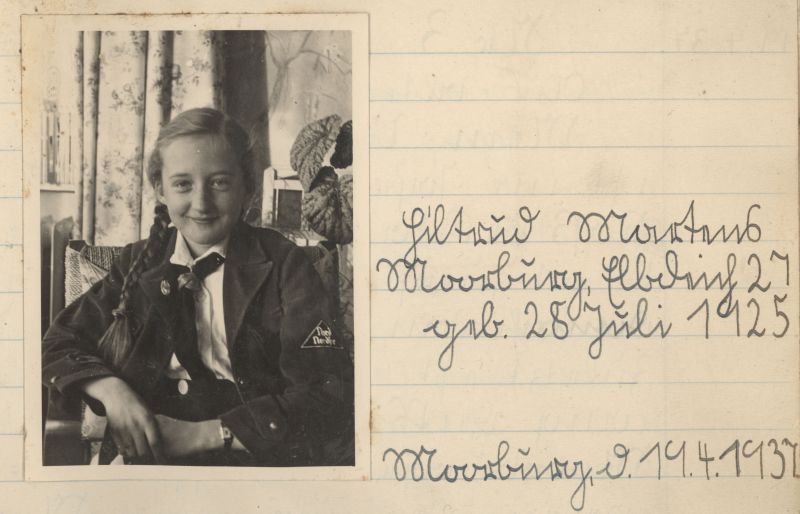 Nord
Nordsee
Hiltrud Martens
Moorburg, Elbdeich 27
geb. 28 Juli 1925
Moorburg, d. 19.4.1937